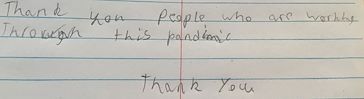 Thank you people who are working
Through this pandimic
Thank You